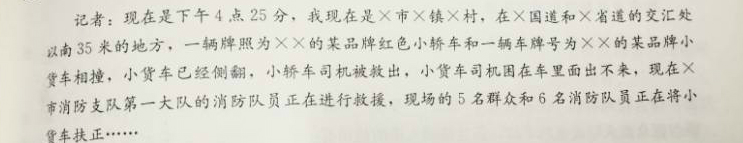 记者：现在是下午4点25分，我现在是×市×镇×村，在×国道和×省道的交汇处
以南35米的地方，一辆牌照为××的某品牌红色小轿车和一辆车牌号为××的某品牌小
货车相撞，小货车已经侧翻，小轿车司机被救出，小货车司机困在车里面出不来，现在×
市消防支队第一大队的消防队员正在进行救援，现场的5名群众和6名消防队员正在将小
货车扶正……